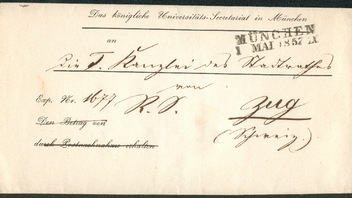 Das königliche Universitäts-Secretariat in München
MÜNCHEN
1 MAI 1857
an
Die T. Kanzlei des Stadtrathes
von
Exp. Nr. 1677 R. S. Zug
Den Betrag von (Schweiz.)
durch Postnachnahme erhalten